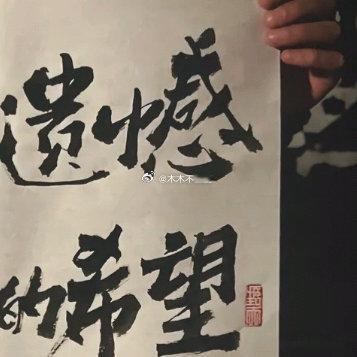 遗憾
的希望
@木木不